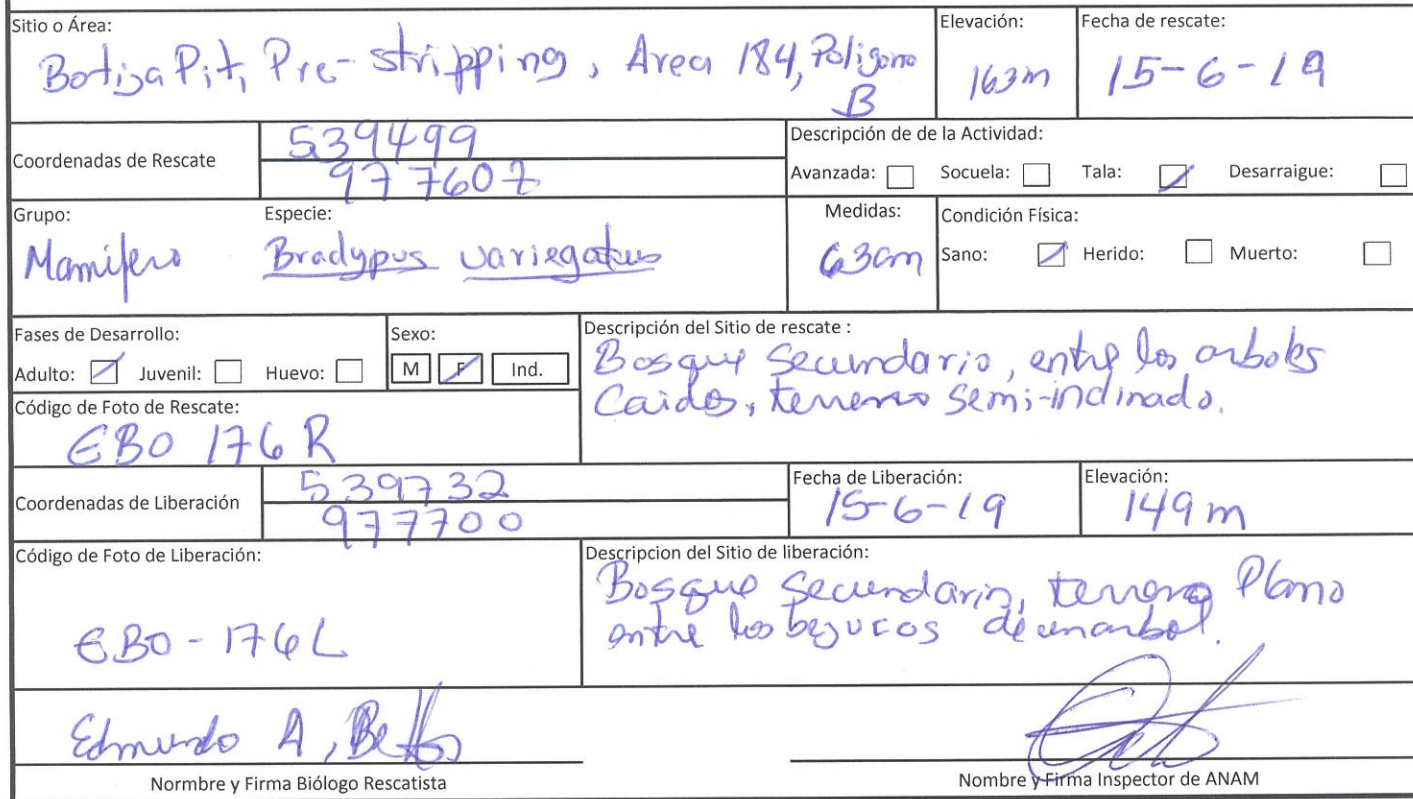 Sitio o Área:
Botija Pit, Pre-stripping, Area 184, Poligono
B
Elevación:
163m
Fecha de rescate:
15-6-19
Coordenadas de Rescate
539499
977607
Descripción de de la Actividad:
Avanzada: Socuela: Tala: Desarraigue:
Grupo:
Mamifero
Especie:
Bradypus variegatus
Medidas:
63cm
Condición Física:
Sano: Herido: Muerto:
Fases de Desarrollo:
Adulto: Juvenil: Huevo:
Sexo:
M F Ind.
Descripción del Sitio de rescate :
Bosque Secundario, entre los arboles
Caidos, terreno Semi-inclinado.
Código de Foto de Rescate:
EBO 176 R
Coordenadas de Liberación
539732
977700
Fecha de Liberación:
15-6-19
Elevación:
149m
Código de Foto de Liberación:
EBO-176L
Descripcion del Sitio de liberación:
Bosque Secundario, terreno Plano
entre los bejucos de un arbol.
Edmundo A,
Normbre y Firma Biólogo Rescatista
Nombre y Firma Inspector de ANAM